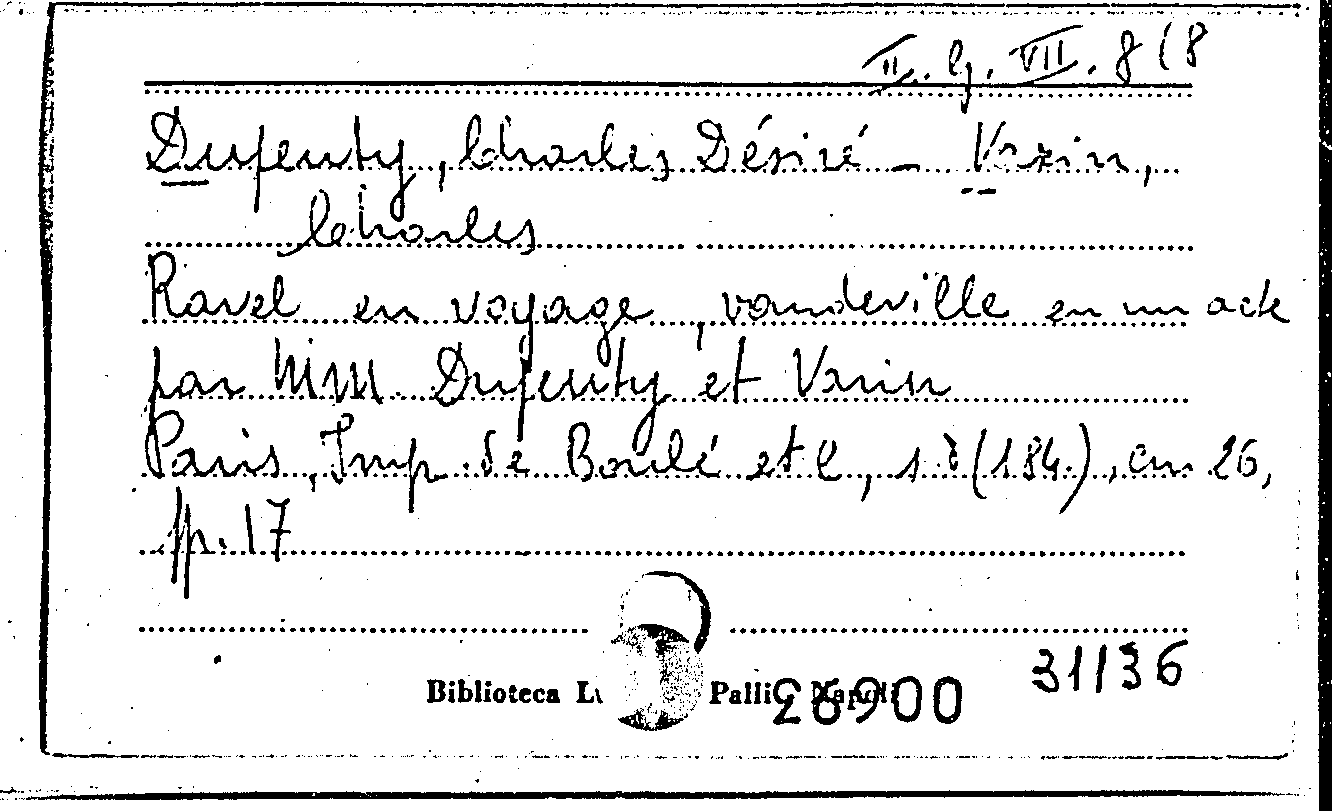 II. G. VII. 8 (8
Dupeuty, Charles Désiré - Varin,
Charles
Ravel en voyage, vaudeville en un acte
par MM. Dupeuty et Varin
Paris, Imp. de Boulé et C, s.d. (184.), cm 26,
pp. 17
31136
Biblioteca Lu Palli Napoli
26900